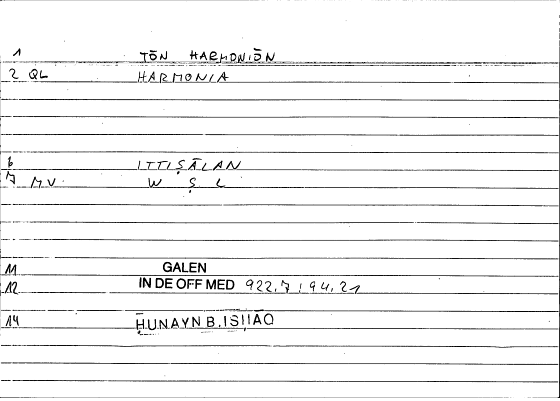 1 TŌN HARMONIŌN
2 QL HARMONIA
6 ITTIṢĀLAN
7 MV W Ṣ L
11 GALEN
12 IN DE OFF MED 922,7 ; 94,21
14 ḤUNAYN B. ISḤĀQ